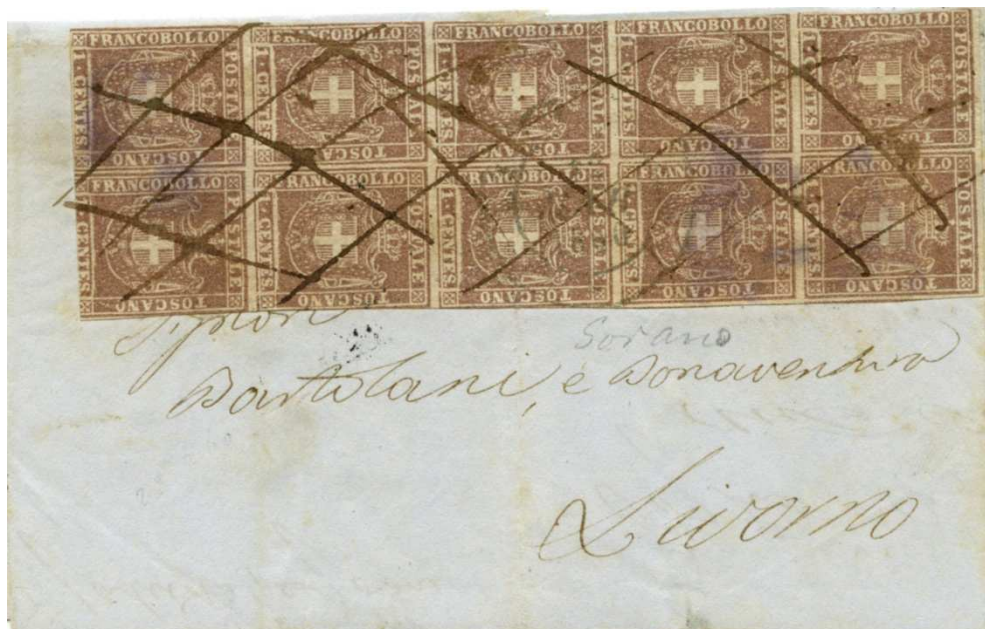 FRANCOBOLLO POSTALE TOSCANO 1. CENTES FRANCOBOLLO POSTALE TOSCANO 1. CENTES FRANCOBOLLO POSTALE TOSCANO 1. CENTES FRANCOBOLLO POSTALE TOSCANO 1. CENTES FRANCOBOLLO POSTALE TOSCANO 1. CENTES
FRANCOBOLLO POSTALE TOSCANO 1. CENTES FRANCOBOLLO POSTALE TOSCANO 1. CENTES FRANCOBOLLO POSTALE TOSCANO 1. CENTES FRANCOBOLLO POSTALE TOSCANO 1. CENTES FRANCOBOLLO POSTALE TOSCANO 1. CENTES
Signori
Sorano
Bartolani, e Bonaventura
Livorno